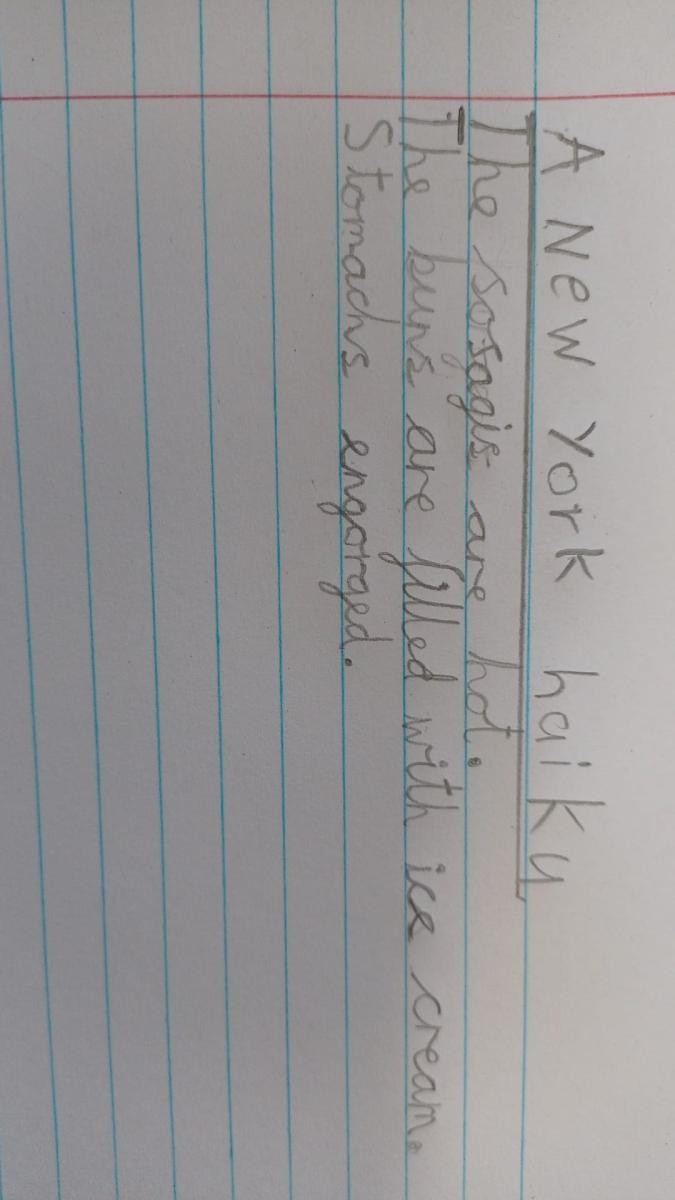 A New York haiku
The sosagis are hot.
The buns are filled with ice cream.
Stomachs engorged.